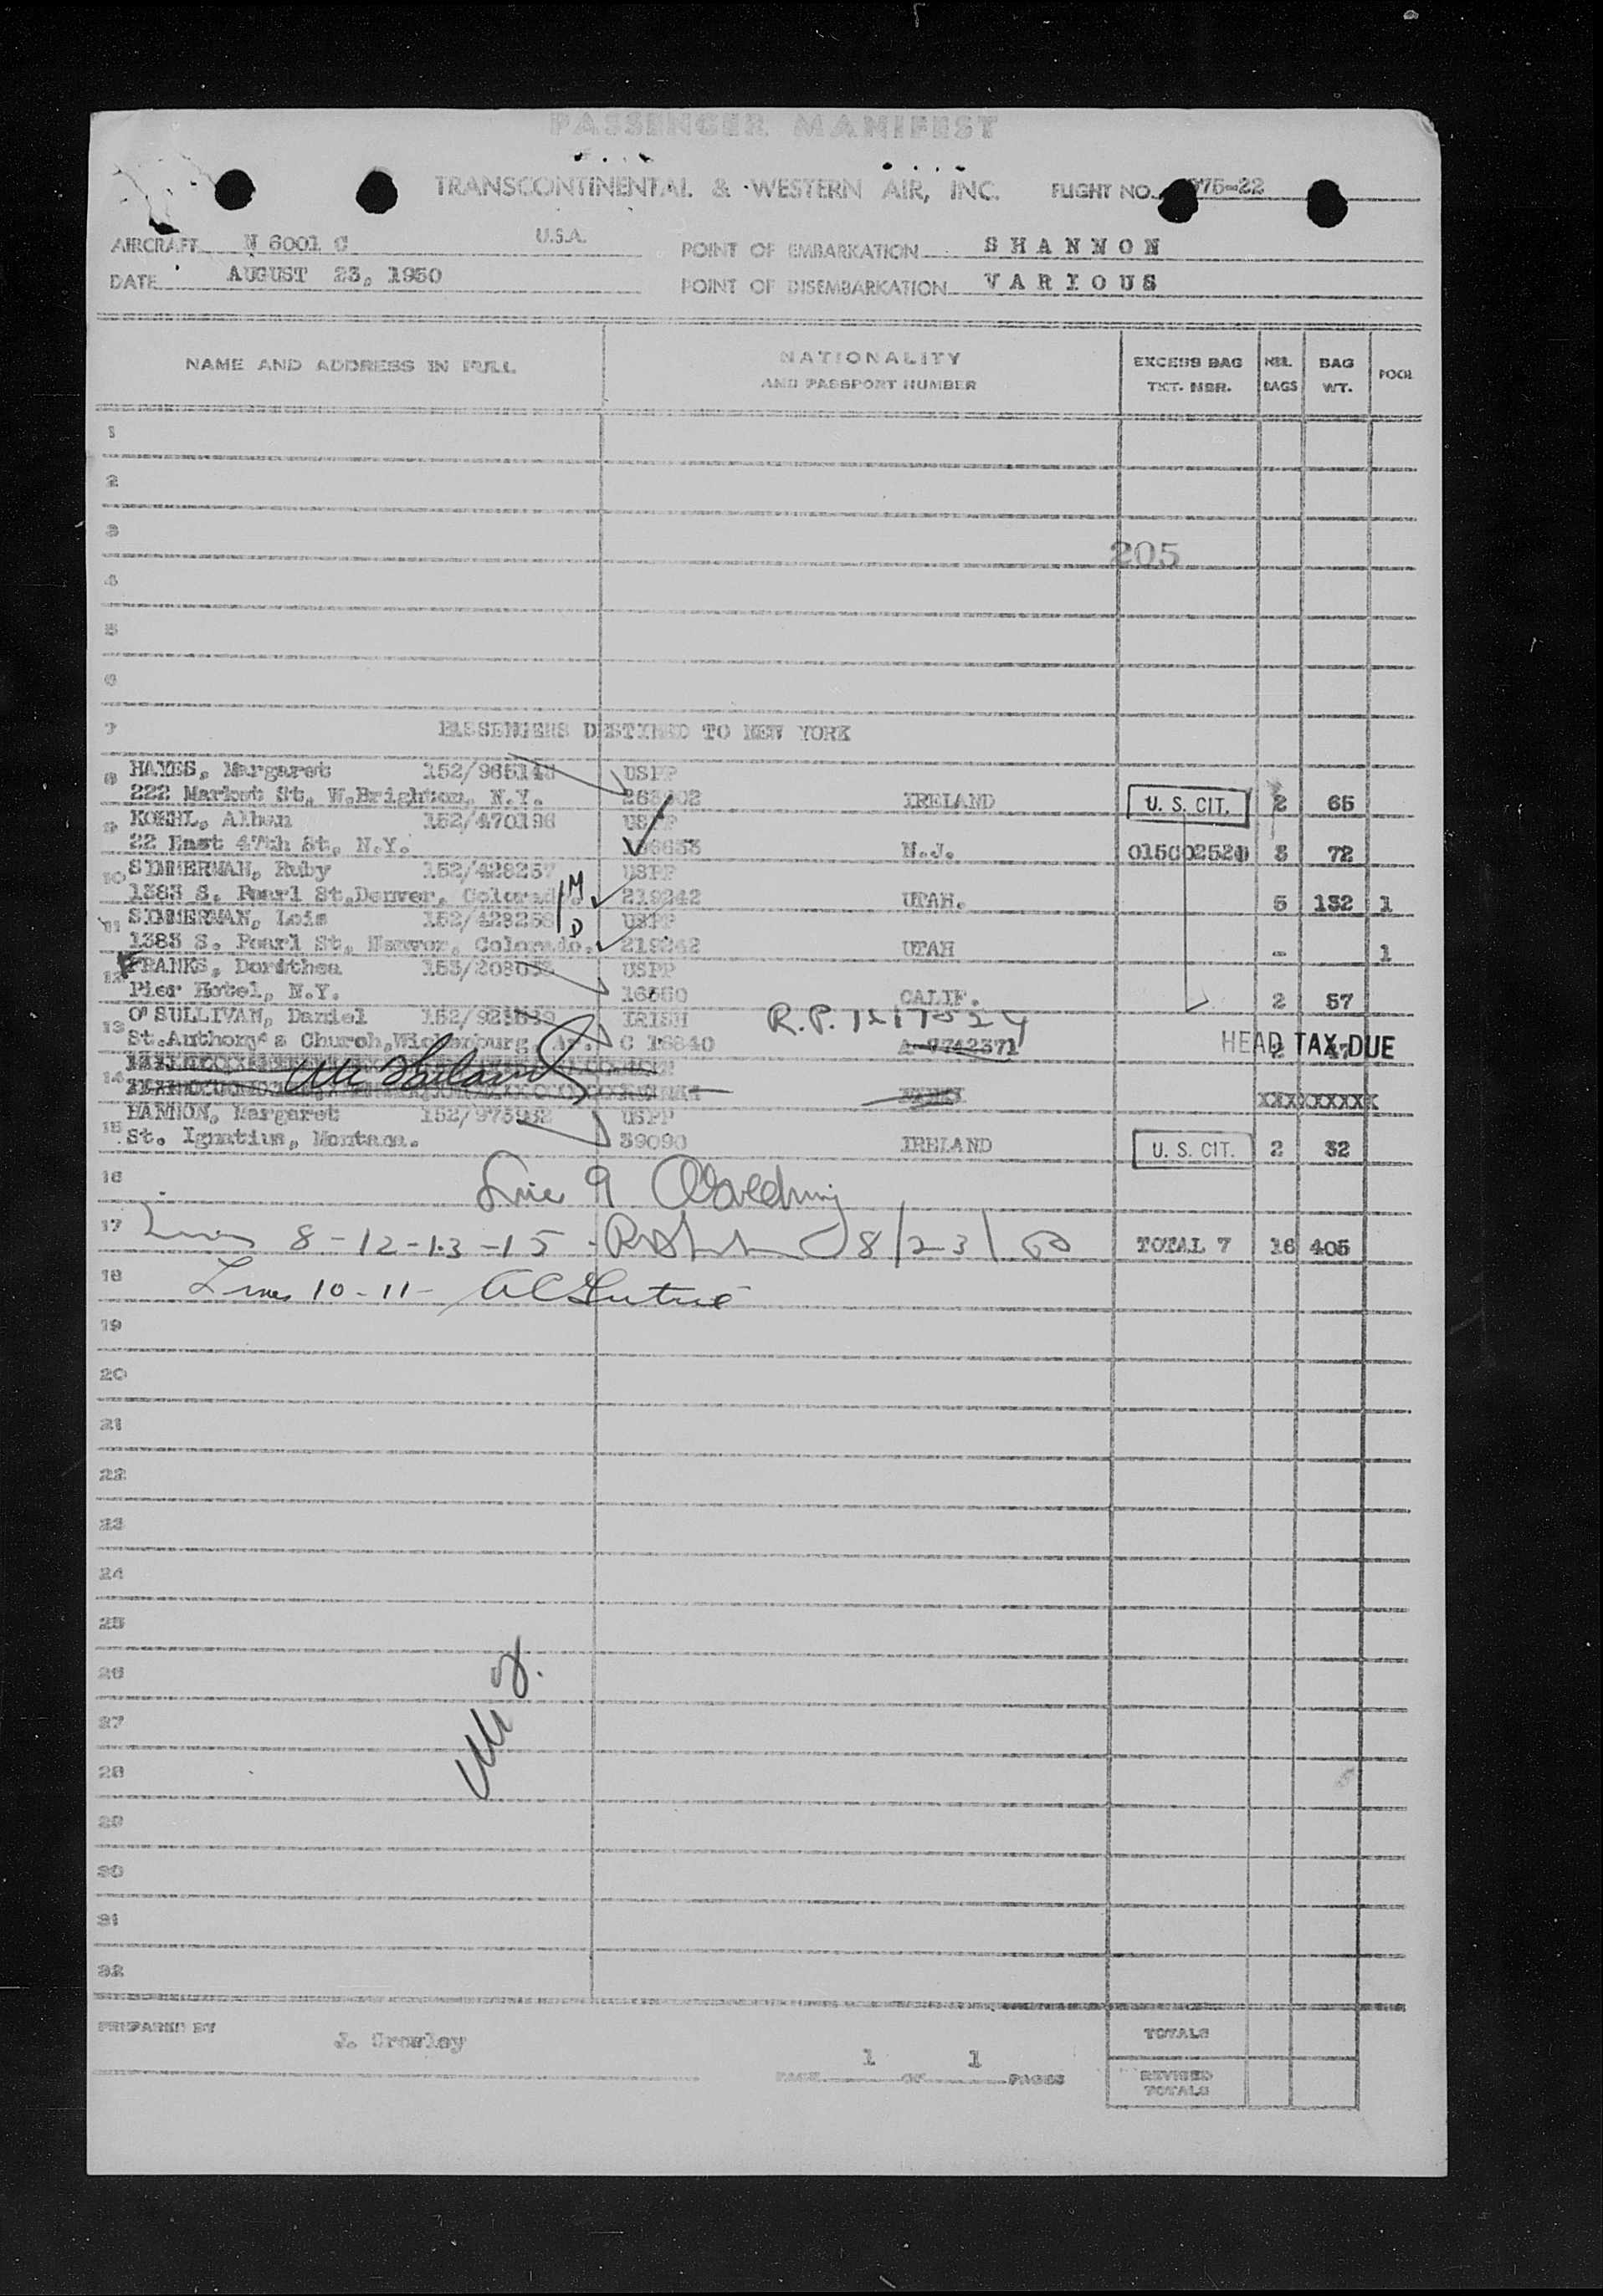 PASSENGER MANIFEST
TRANSCONTINENTAL & WESTERN AIR, INC. FLIGHT NO. 975-22
AIRCRAFT N 6001 C U.S.A. POINT OF EMBARKATION SHANNON
DATE AUGUST 23, 1950 POINT OF DISEMBARKATION VARIOUS
NAME AND ADDRESS IN FULL NATIONALITY AND PASSPORT NUMBER EXCESS BAG TKT. NBR. NBR. BAGS BAG WT. POOL
1
2
3
205
4
5
6
7 PASSENGERS DESTINED TO NEW YORK
8 HAYES, Margaret USPP
222 Market St, W.Brighton, N.Y. IRELAND U. S. CIT. 2 65
9 KOEHL, Alban 152/470196 USPP
22 East 47th St, N.Y. N.J. 3 72
10 SIMMERMAN, Ruby USPP
1383 S. Pearl St,Denver, Colorado. M 219242 UTAH. 5 132 1
11 SIMMERMAN, Lois 152/428258 USPP
1383 S. Pearl St, Denver, Colorado. D 219242 UTAH - 1
12 FRANKS, Dorothea USPP
Pier Hotel, N.Y. CALIF. 2 57
13 O'SULLIVAN, Daniel IRISH R.P.
St.Anthony's Church,Wickenburg, C 16840 A-7742371 HEAD TAX DUE
14 XXXXXXXXX
15 HANNON, Margaret USPP
St. Ignatius, Montana. 39090 IRELAND U. S. CIT. 2 32
16 Line 9
17 Lines 8-12-13-15 8/23/50 TOTAL 7 16 405
18 Lines 10-11-
19
20
21
22
23
24
25
26
27
28
29
30
31
32
PREPARED BY J. Crowley
PAGE 1 OF 1 PAGES
TOTALS
REVISED TOTALS